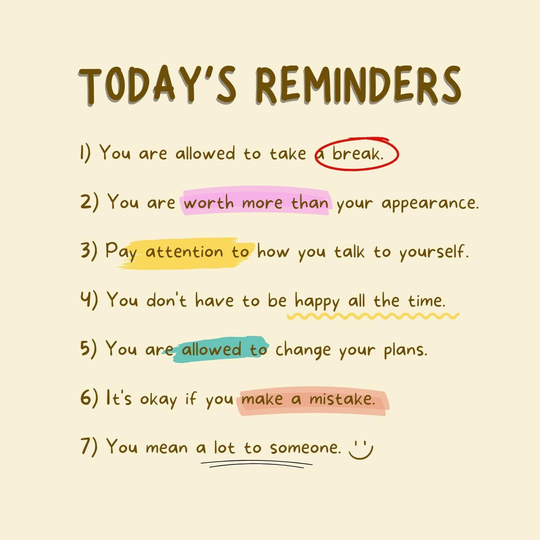 TODAY'S REMINDERS
1) You are allowed to take a break.
2) You are worth more than your appearance.
3) Pay attention to how you talk to yourself.
4) You don't have to be happy all the time.
5) You are allowed to change your plans.
6) It's okay if you make a mistake.
7) You mean a lot to someone.